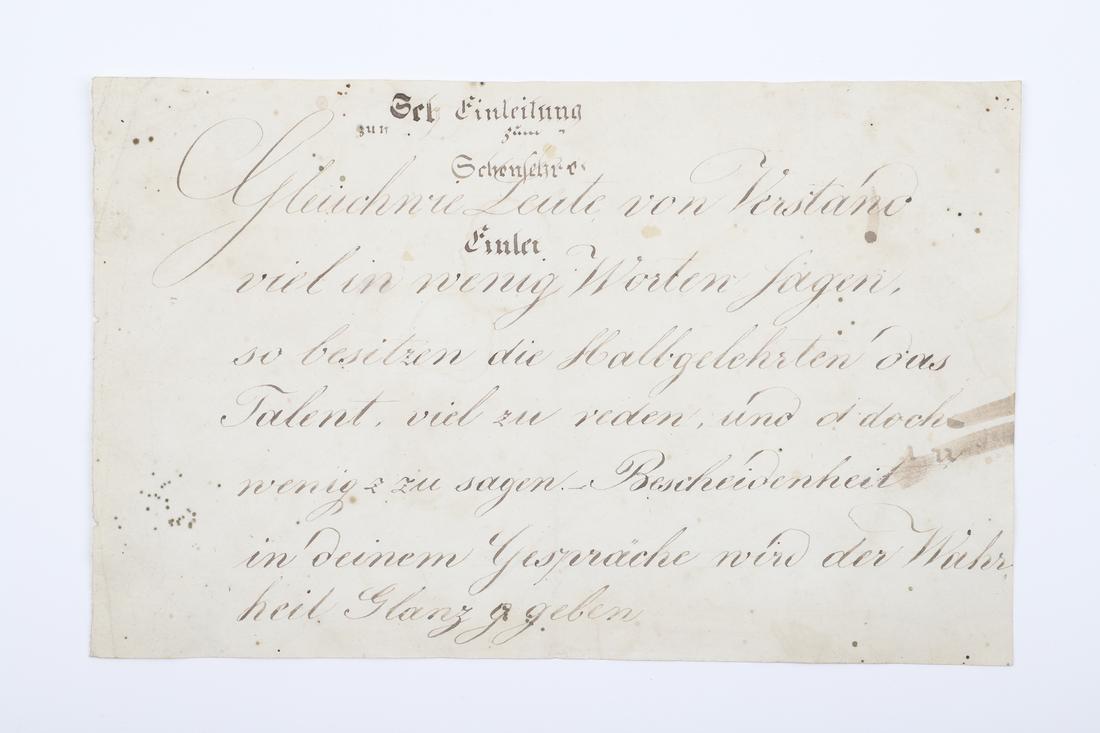 Sch Einleitung
zun zum
Schönschr
Gleichwie Leute von Verstand
Einlei
viel in wenig Worten sagen,
so besitzen die Halbgelehrten das
Talent, viel zu reden, und d doch
zu
wenig z zu sagen. – Bescheidenheit
in deinem Gespräche wird der Wahr
heit Glanz g geben